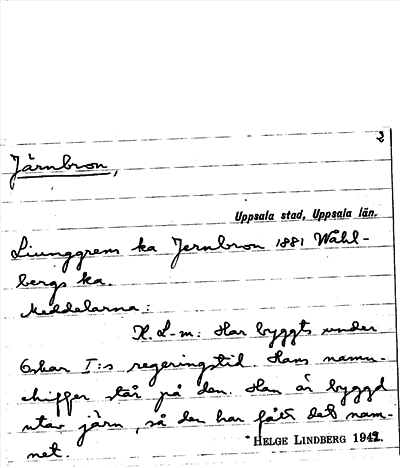 2
Järnbron,
Uppsala stad, Uppsala län.
Liunggrem ka Jernbron 1881 Wåhl-
bergs ka.
Meddelarna:
H. L-m: Har byggts under
Oskar I:s regeringstid. Hans namn-
chiffer står på den. Hon är byggd
utav järn, så den har fått det nam-
net.
HELGE LINDBERG 1942.